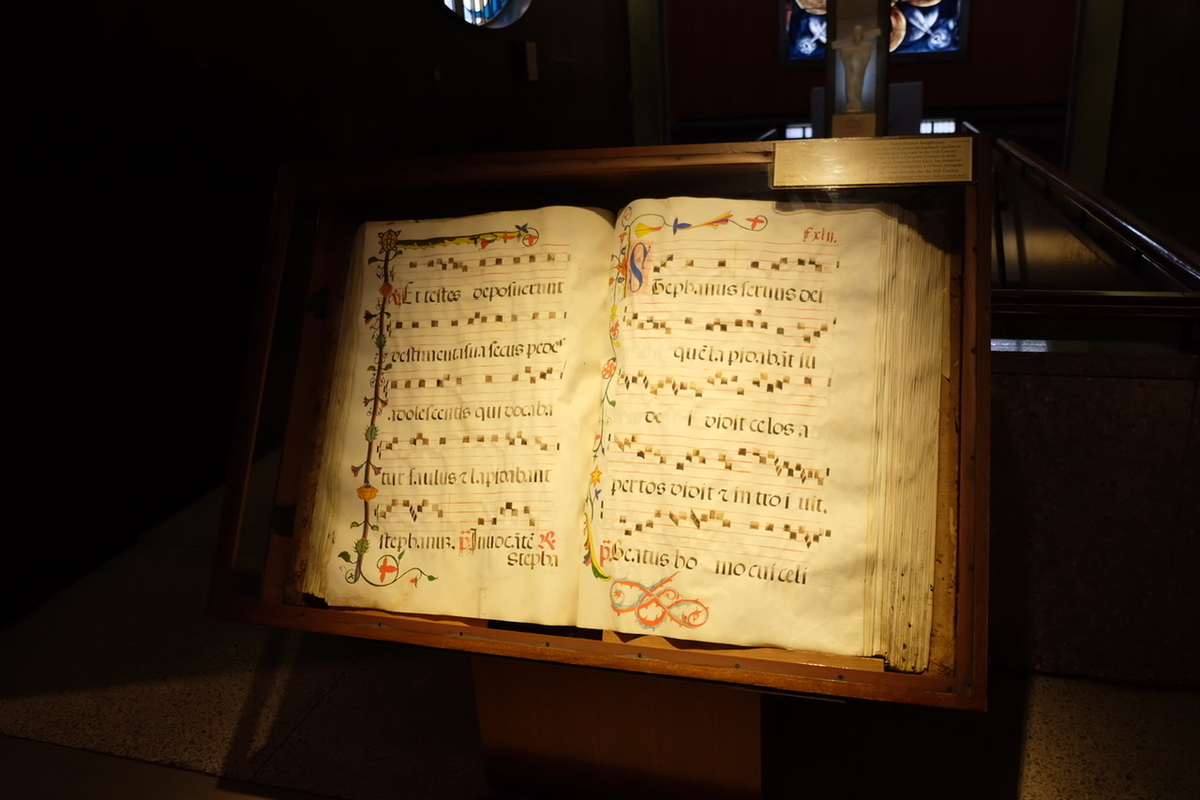 Et testes deposuerunt
vestimenta sua secus pedes
adolescentis qui voca ba
tur saulus ⁊ lapidabant
stephanum. p̄ Invocātē ℟
Stepha
Fxlii.
Stephanus servus dei
quē la pidabāt iu
de i vidit celos a
pertos vidit ⁊ in tro i uit.
p̄ Beatus ho mo cui celi